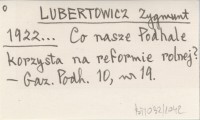 LUBERTOWICZ Zygmunt
1922... Co nasze Podhale
korzysta na reformie rolnej?
– Gaz. Podh. 10, nr 19.